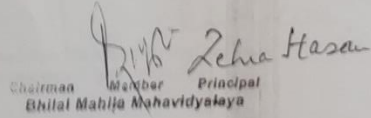 Zehra Hasan
Chairman Member Principal
Bhilai Mahila Mahavidyalaya